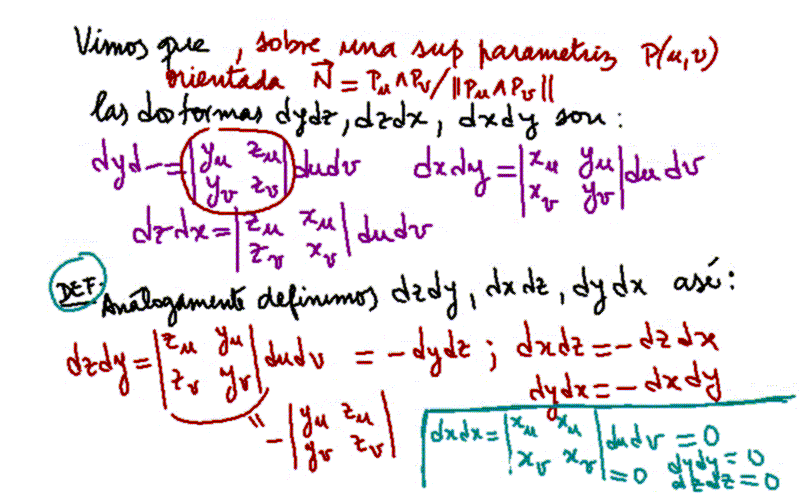 Vimos que, sobre una sup parametriz P(u,v)
orientada N⃗ = Pu∧Pv/||Pu∧Pv||
las dos formas dydz, dzdx, dxdy son:
dyd– = |yu zu; yv zv| dudv    dxdy = |xu yu; xv yv| du dv
dzdx = |zu xu; zv xv| dudv
DEF. Análogamente definimos dzdy, dxdz, dydx así:
dzdy = |zu yu; zv yv| dudv = -dydz ; dxdz = -dzdx
dydx = -dxdy
" -|yu zu; yv zv|
dxdx = |xu xu; xv xv| dudv = 0
=0 dydy = 0
dzdz = 0